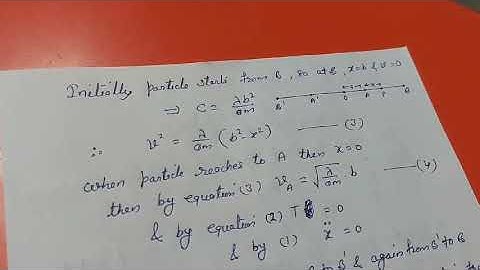 Initially particle starts from B, so at B, x=b & v=0
⇒ C = λb²/am
B' A' O A P B
∴ v² = λ/am (b²-x²) —— (3)
when particle reaches to A then x=0
then by equation (3) v_A = √(λ/am) . b —— (4)
& by equation (2) T = 0
& by (1) ẍ = 0
to B' & again from B' to B